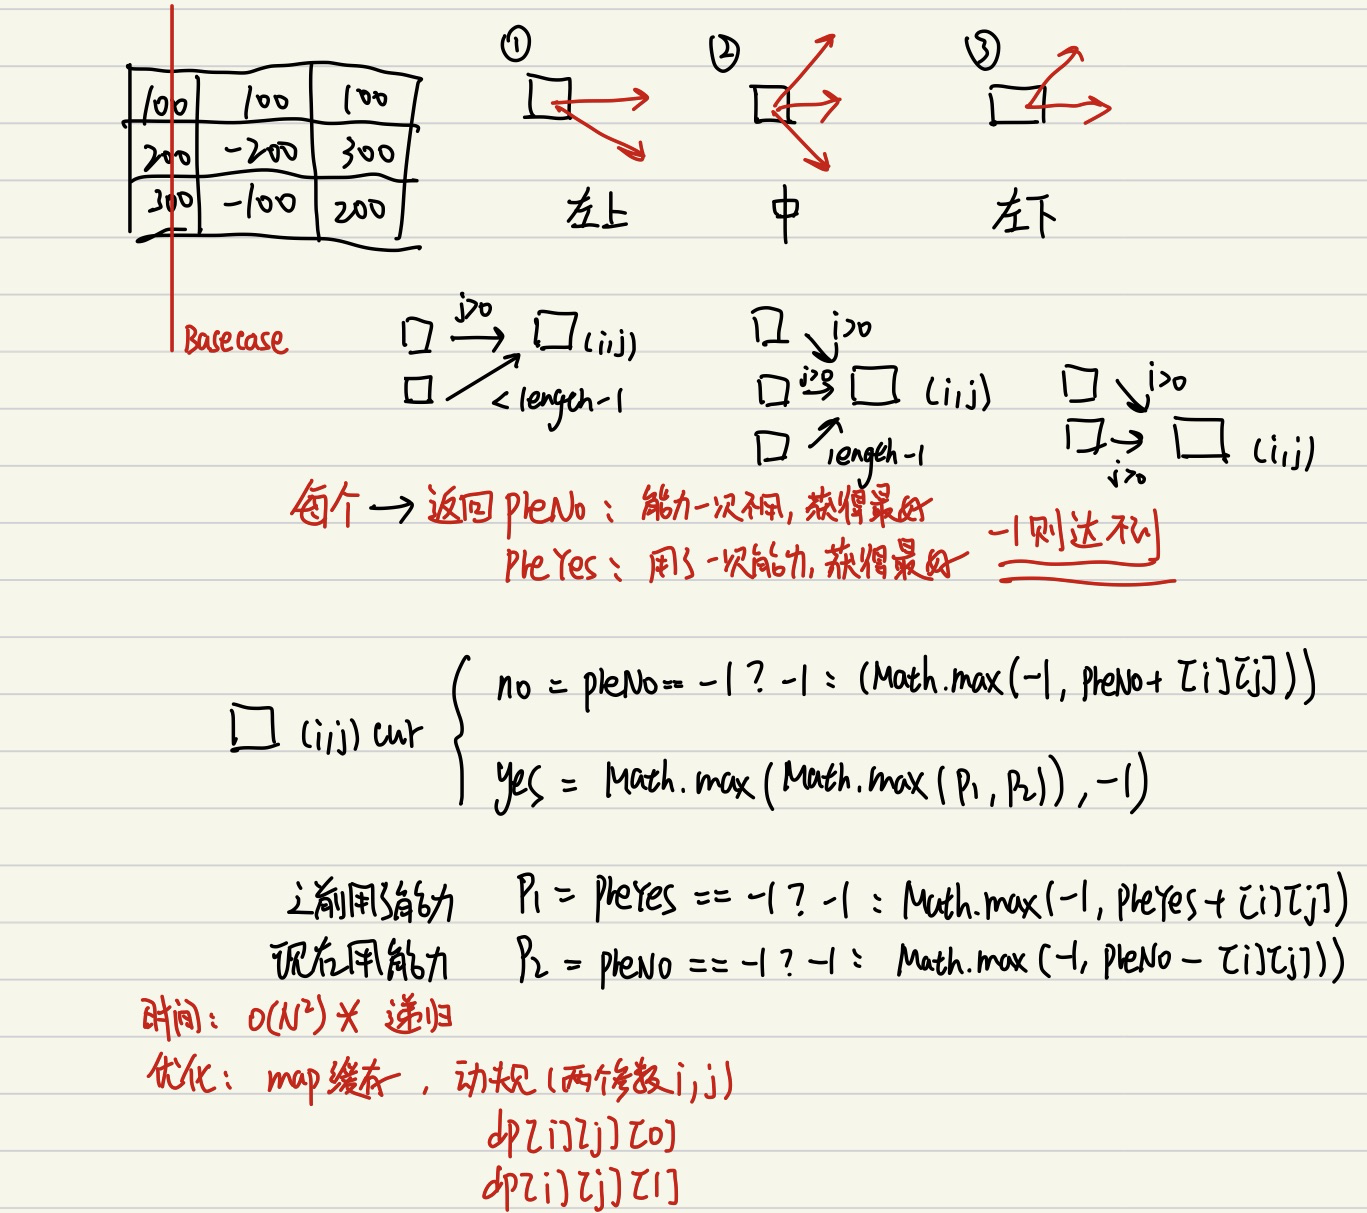 ① ② ③
100 100 100
200 -200 300
300 -100 200
左上 中 左下
Basecase
j>0 (i,j)
< length-1
j>0
j>0 (i,j)
length-1
i>0
j>0 (i,j)
每个 → 返回 preNo : 能力一次不用, 获得最好
preYes : 用了一次能力, 获得最好 -1则达不到
(i,j) cur
no = preNo == -1 ? -1 : (Math.max(-1, preNo + [i][j]))
yes = Math.max(Math.max(P1, P2)), -1)
之前用了能力 P1 = preYes == -1 ? -1 : Math.max(-1, preYes + [i][j])
现在用能力 P2 = preNo == -1 ? -1 : Math.max(-1, preNo - [i][j]))
时间: O(N²) * 递归
优化: map缓存, 动规 (两个参数i,j)
dp[i][j][0]
dp[i][j][1]